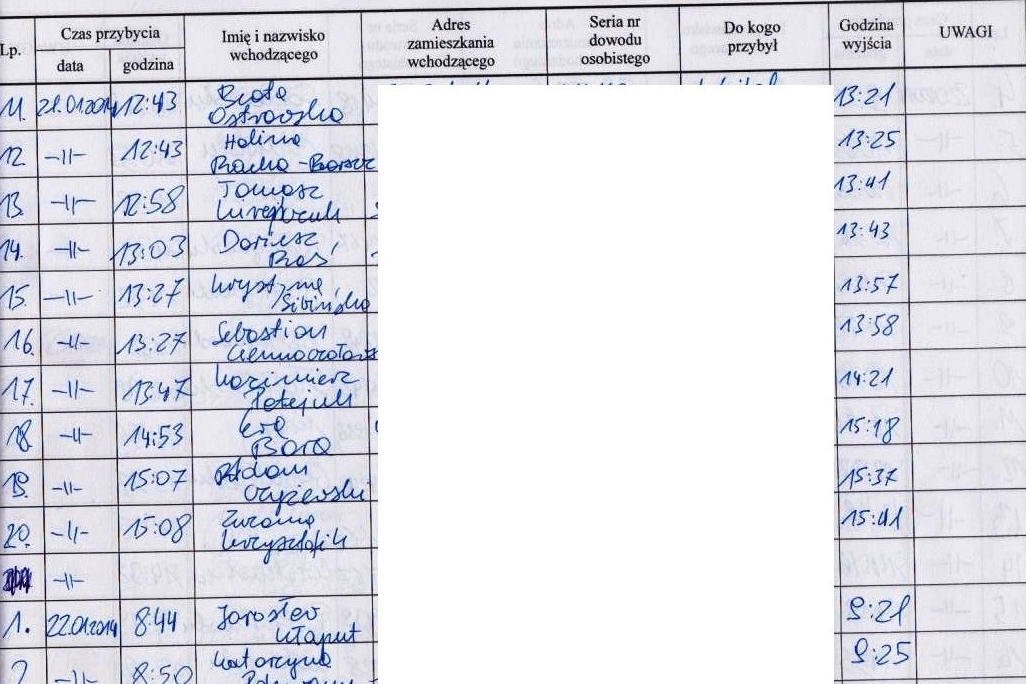 Lp. Czas przybycia Imię i nazwisko wchodzącego Adres zamieszkania wchodzącego Seria nr dowodu osobistego Do kogo przybył Godzina wyjścia UWAGI
data godzina
11. 21.01.2014 12:43 Beata 13:21
Ostrowska
12 -11- 12:43 Halina 13:25
13. -11- 12:58 Tomasz 13:41
14. -11- 13:03 Dariusz 13:43
15. -11- 13:27 Krystyna 13:57
16. -11- 13:27 Sebastian 13:58
17. -11- 13:47 Kazimierz 14:21
Patejuk
18 -11- 14:53 Ewa 15:18
19. -11- 15:07 Adam 15:37
20. -11- 15:08 Zuzanna 15:41
-11-
1. 22.01.2014 8:44 Jarosław 9:21
Kłaput
2 -11- 8:50 Katarzyna 9:25